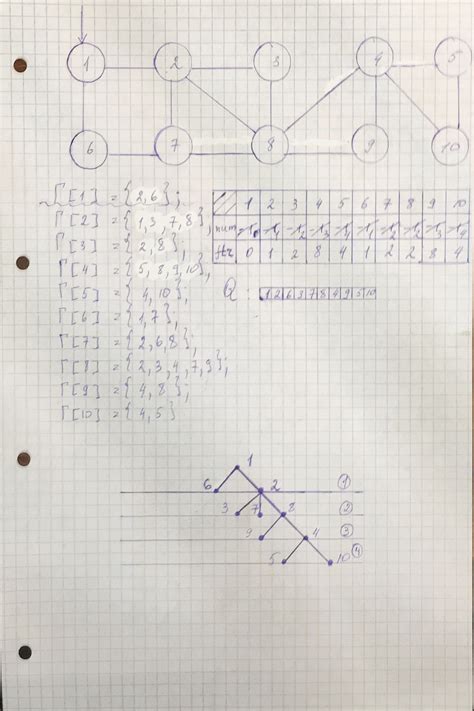 1 2 3 4 5
6 7 8 9 10
Γ[1] = {2,6};
Γ[2] = {1,3,7,8};
Γ[3] = {2,8};
Γ[4] = {5,8,9,10};
Γ[5] = {4,10};
Γ[6] = {1,7};
Γ[7] = {2,6,8};
Γ[8] = {2,3,4,7,9};
Γ[9] = {4,8};
Γ[10] = {4,5}
1 2 3 4 5 6 7 8 9 10
num
ftr 0 1 2 8 4 1 2 2 8 4
Q: 1 2 6 3 7 8 4 9 5 10
1
6 2 ①
3 7 8 ②
9 4 ③
5 10 ④